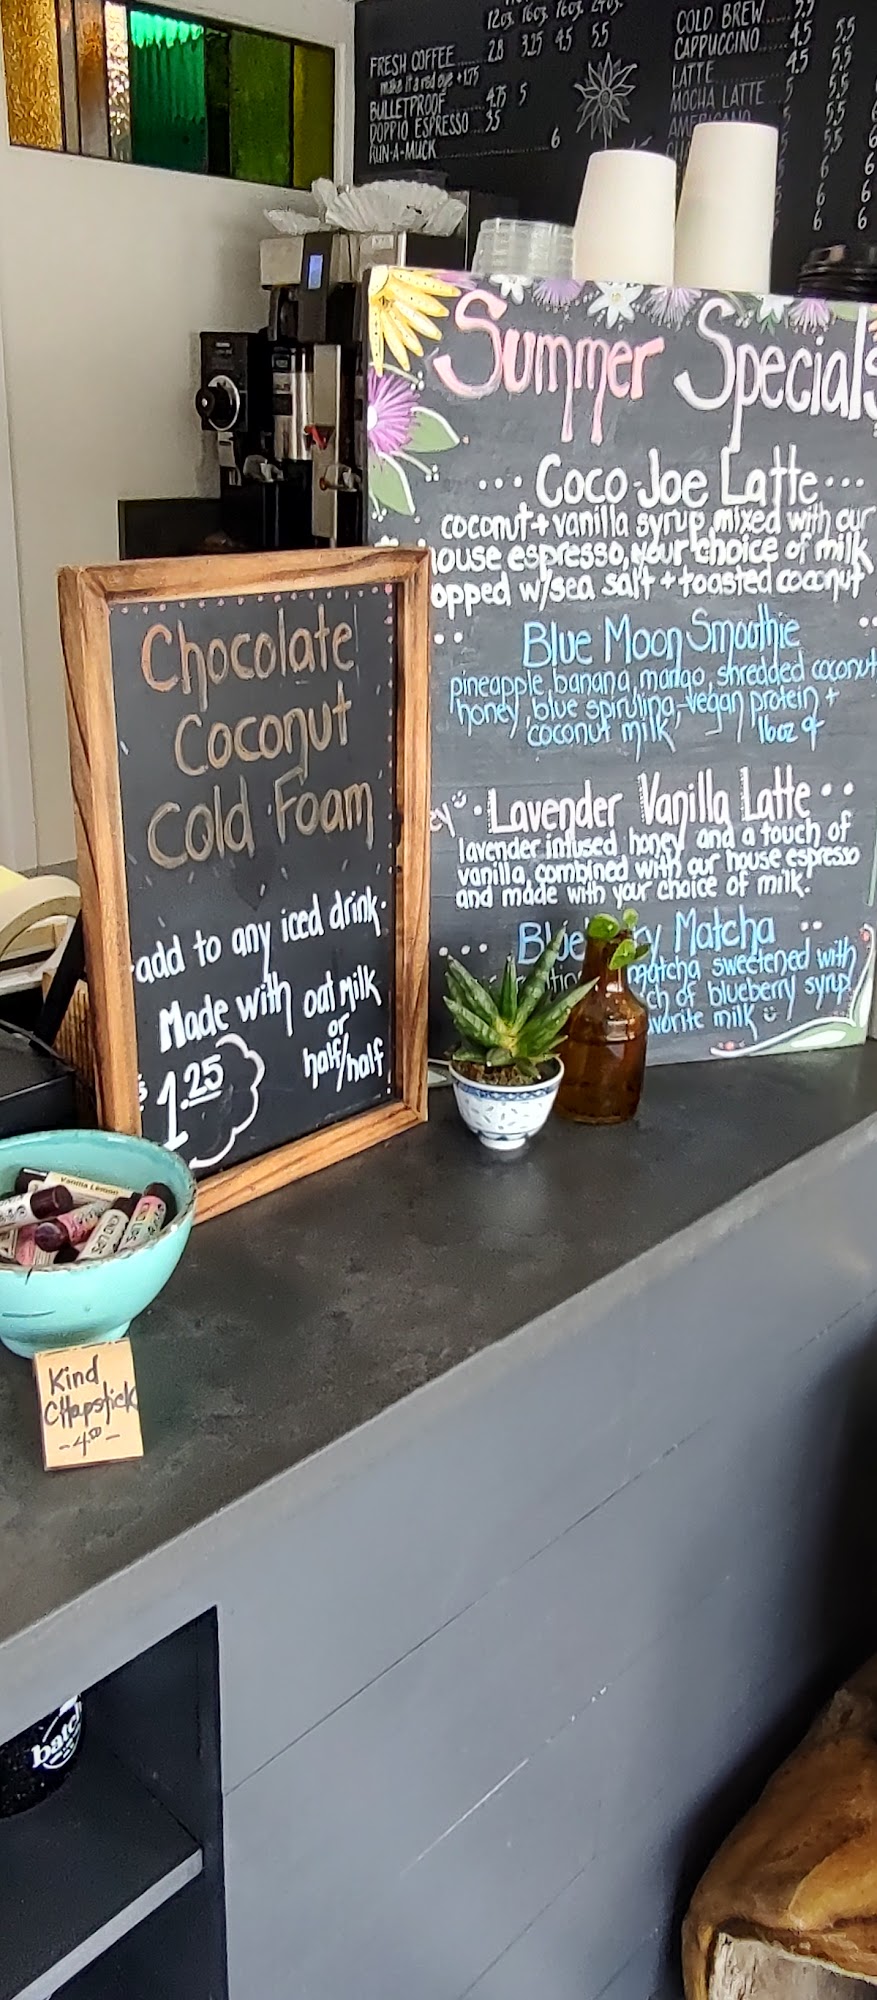 12oz. 16oz. 16oz. 24oz.
FRESH COFFEE 2.8 3.25 4.5 5.5
make it a red eye +1.75
BULLETPROOF 4.75 5
DOPPIO ESPRESSO 3.5
RUN-A-MUCK 6
COLD BREW 5.5
CAPPUCCINO 4.5 5.5
LATTE 4.5 5.5
MOCHA LATTE 5 5.5
AMERICANO
6
6
6
Summer Specials
Coco-Joe Latte
coconut + vanilla syrup mixed with our
house espresso, your choice of milk
opped w/sea salt + toasted coconut
Blue Moon Smoothie
pineapple, banana, mango, shredded coconut
honey, blue spirulina, vegan protein +
coconut milk 16oz 9
Lavender Vanilla Latte
lavender infused honey and a touch of
vanilla, combined with our house espresso
and made with your choice of milk.
Matcha
matcha sweetened with
of blueberry syrup
milk
Chocolate
Coconut
Cold Foam
add to any iced drink.
Made with oat milk
or
half/half
$1.25
Vanilla Lemon
KIND LIPS
Kind
CHapstick
-4.00-
batch